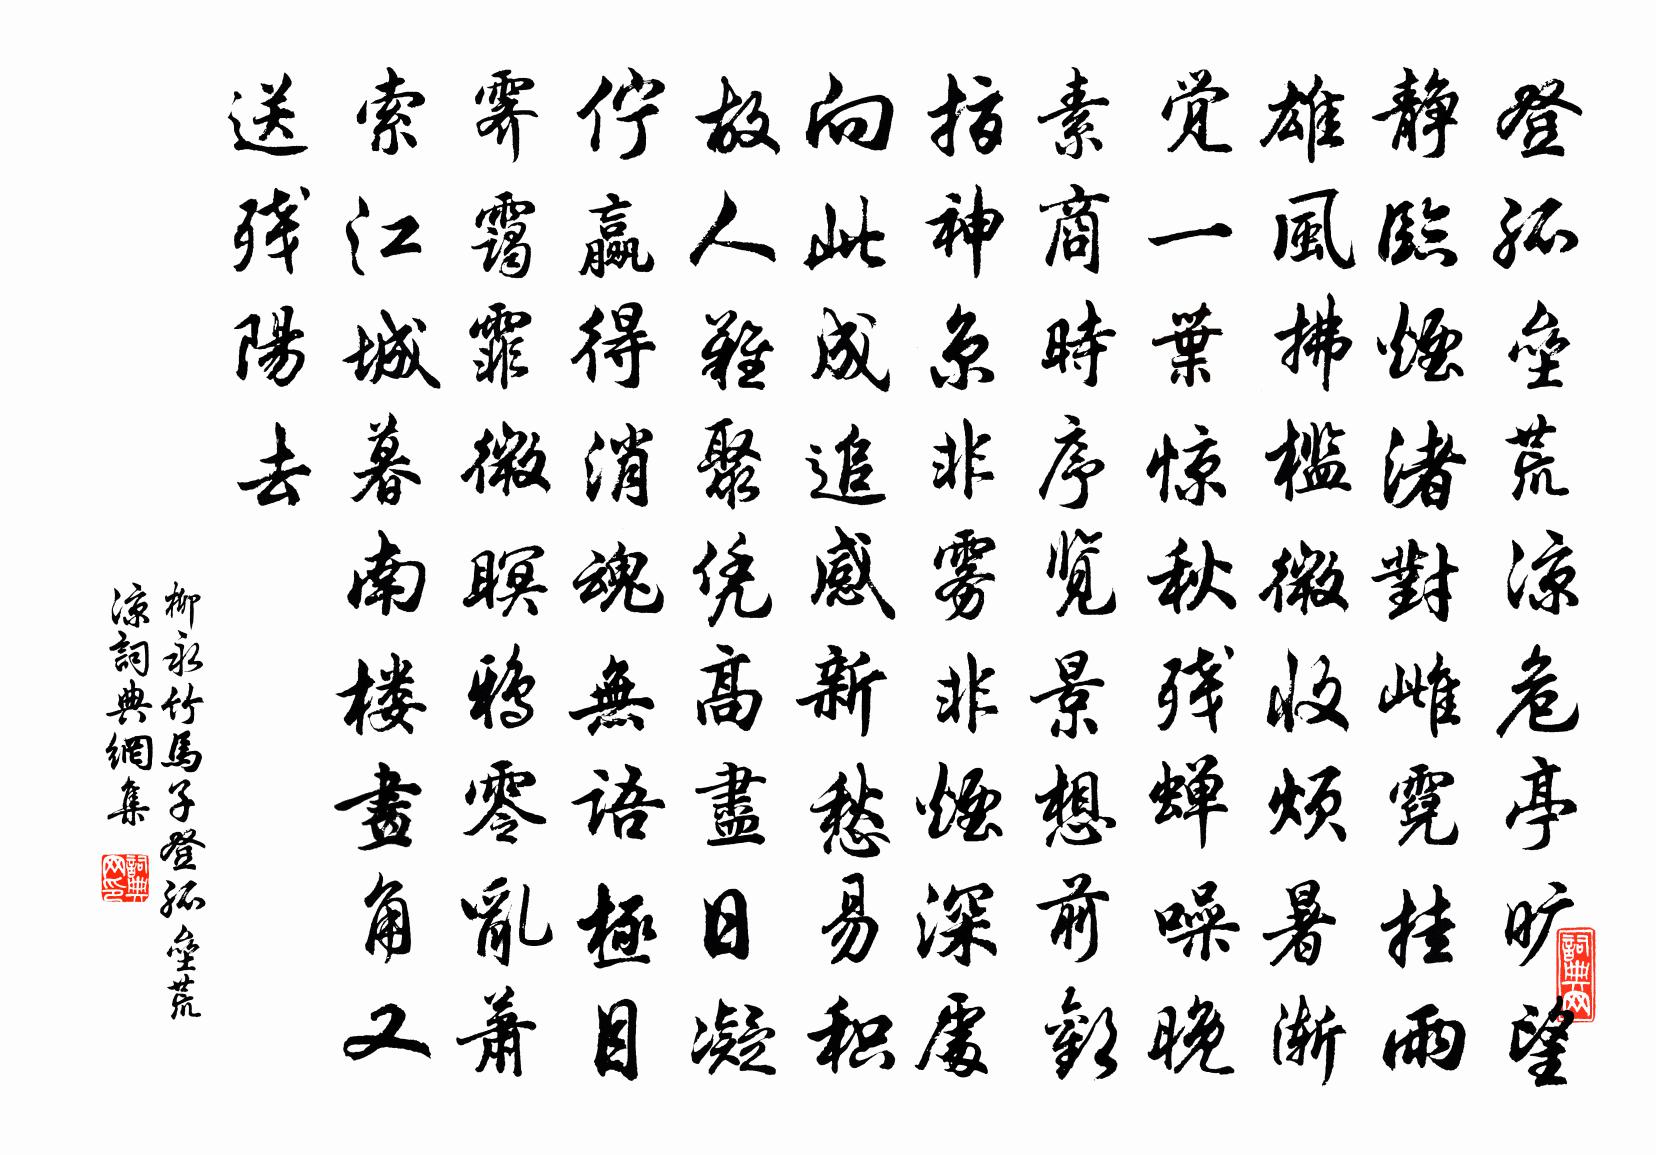 登孤垒荒涼危亭旷望
静臨煙渚對雌霓挂雨
雄風拂槛微收烦暑渐
觉一葉惊秋残蝉噪晚
素商時序览景想前歡
指神京非雾非煙深處
向此成追感新愁易积
故人難聚凭高盡日凝
佇赢得消魂無語極目
霁靄霏微暝鸦零亂蕭
索江城暮南楼畫角又
送残陽去
柳永竹馬子登孤垒荒
涼詞典網集
詞典网
詞典网印